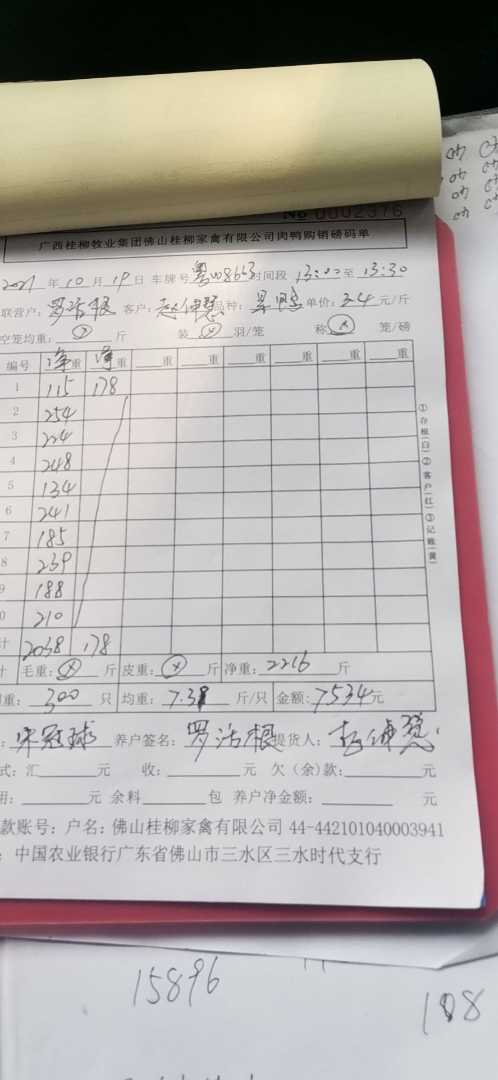 No 0002376
广西桂柳牧业集团佛山桂柳家禽有限公司肉鸭购销磅码单
2021 年 10 月 19 日 车牌号 时间段 13:00 至 13:30
联营户: 客户: 品种: 单价: 3.4 元/斤
空笼均重: 斤 装 羽/笼 称 笼/磅
编号 净重 净重 重 重 重 重 重
1 115 178
2 254
3 224
4 248
5 134
6 241
7 185
8 239
9 188
0 210
计 2038 178
计 毛重: 斤 皮重: 斤 净重: 2216 斤
重: 300 只 均重: 7.38 斤/只 金额: 7534 元
: 养户签名: 提货人:
式: 汇 元 收: 元 欠(余)款: 元
用: 元 余料 包 养户净金额: 元
款账号: 户名: 佛山桂柳家禽有限公司 44-442101040003941
: 中国农业银行广东省佛山市三水区三水时代支行
①存根(白)②客户(红)③记账(黄)
15896
188